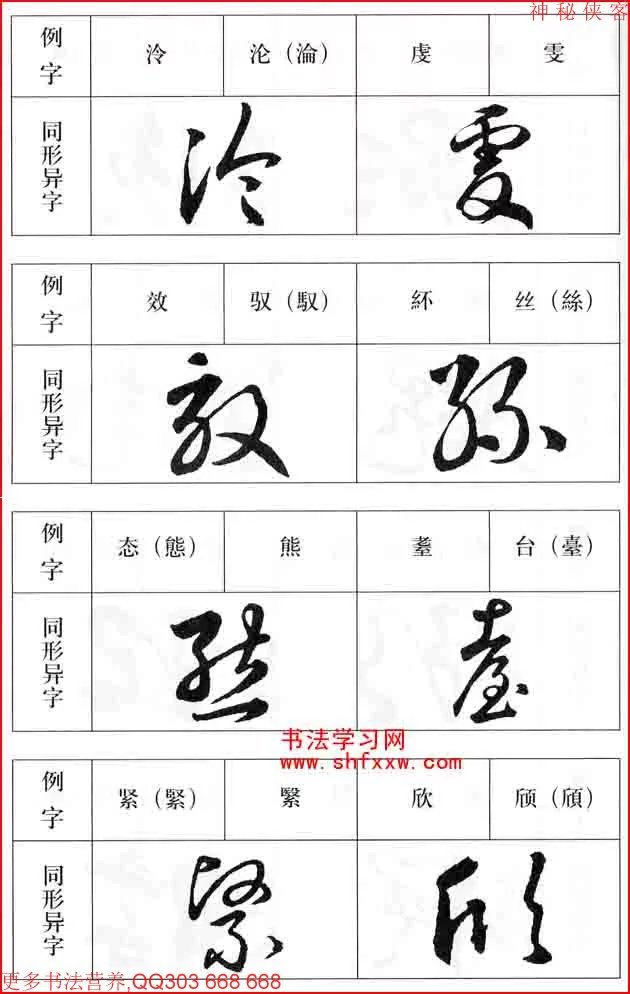 神秘侠客
例字 泠 沦（淪） 虔 雯
同形异字
例字 效 驭（馭） 紑 丝（絲）
同形异字
例字 态（態） 熊 耋 台（臺）
同形异字
书法学习网
www.shfxxw.com
例字 紧（緊） 繄 欣 颀（頎）
同形异字
更多书法营养,QQ303 668 668